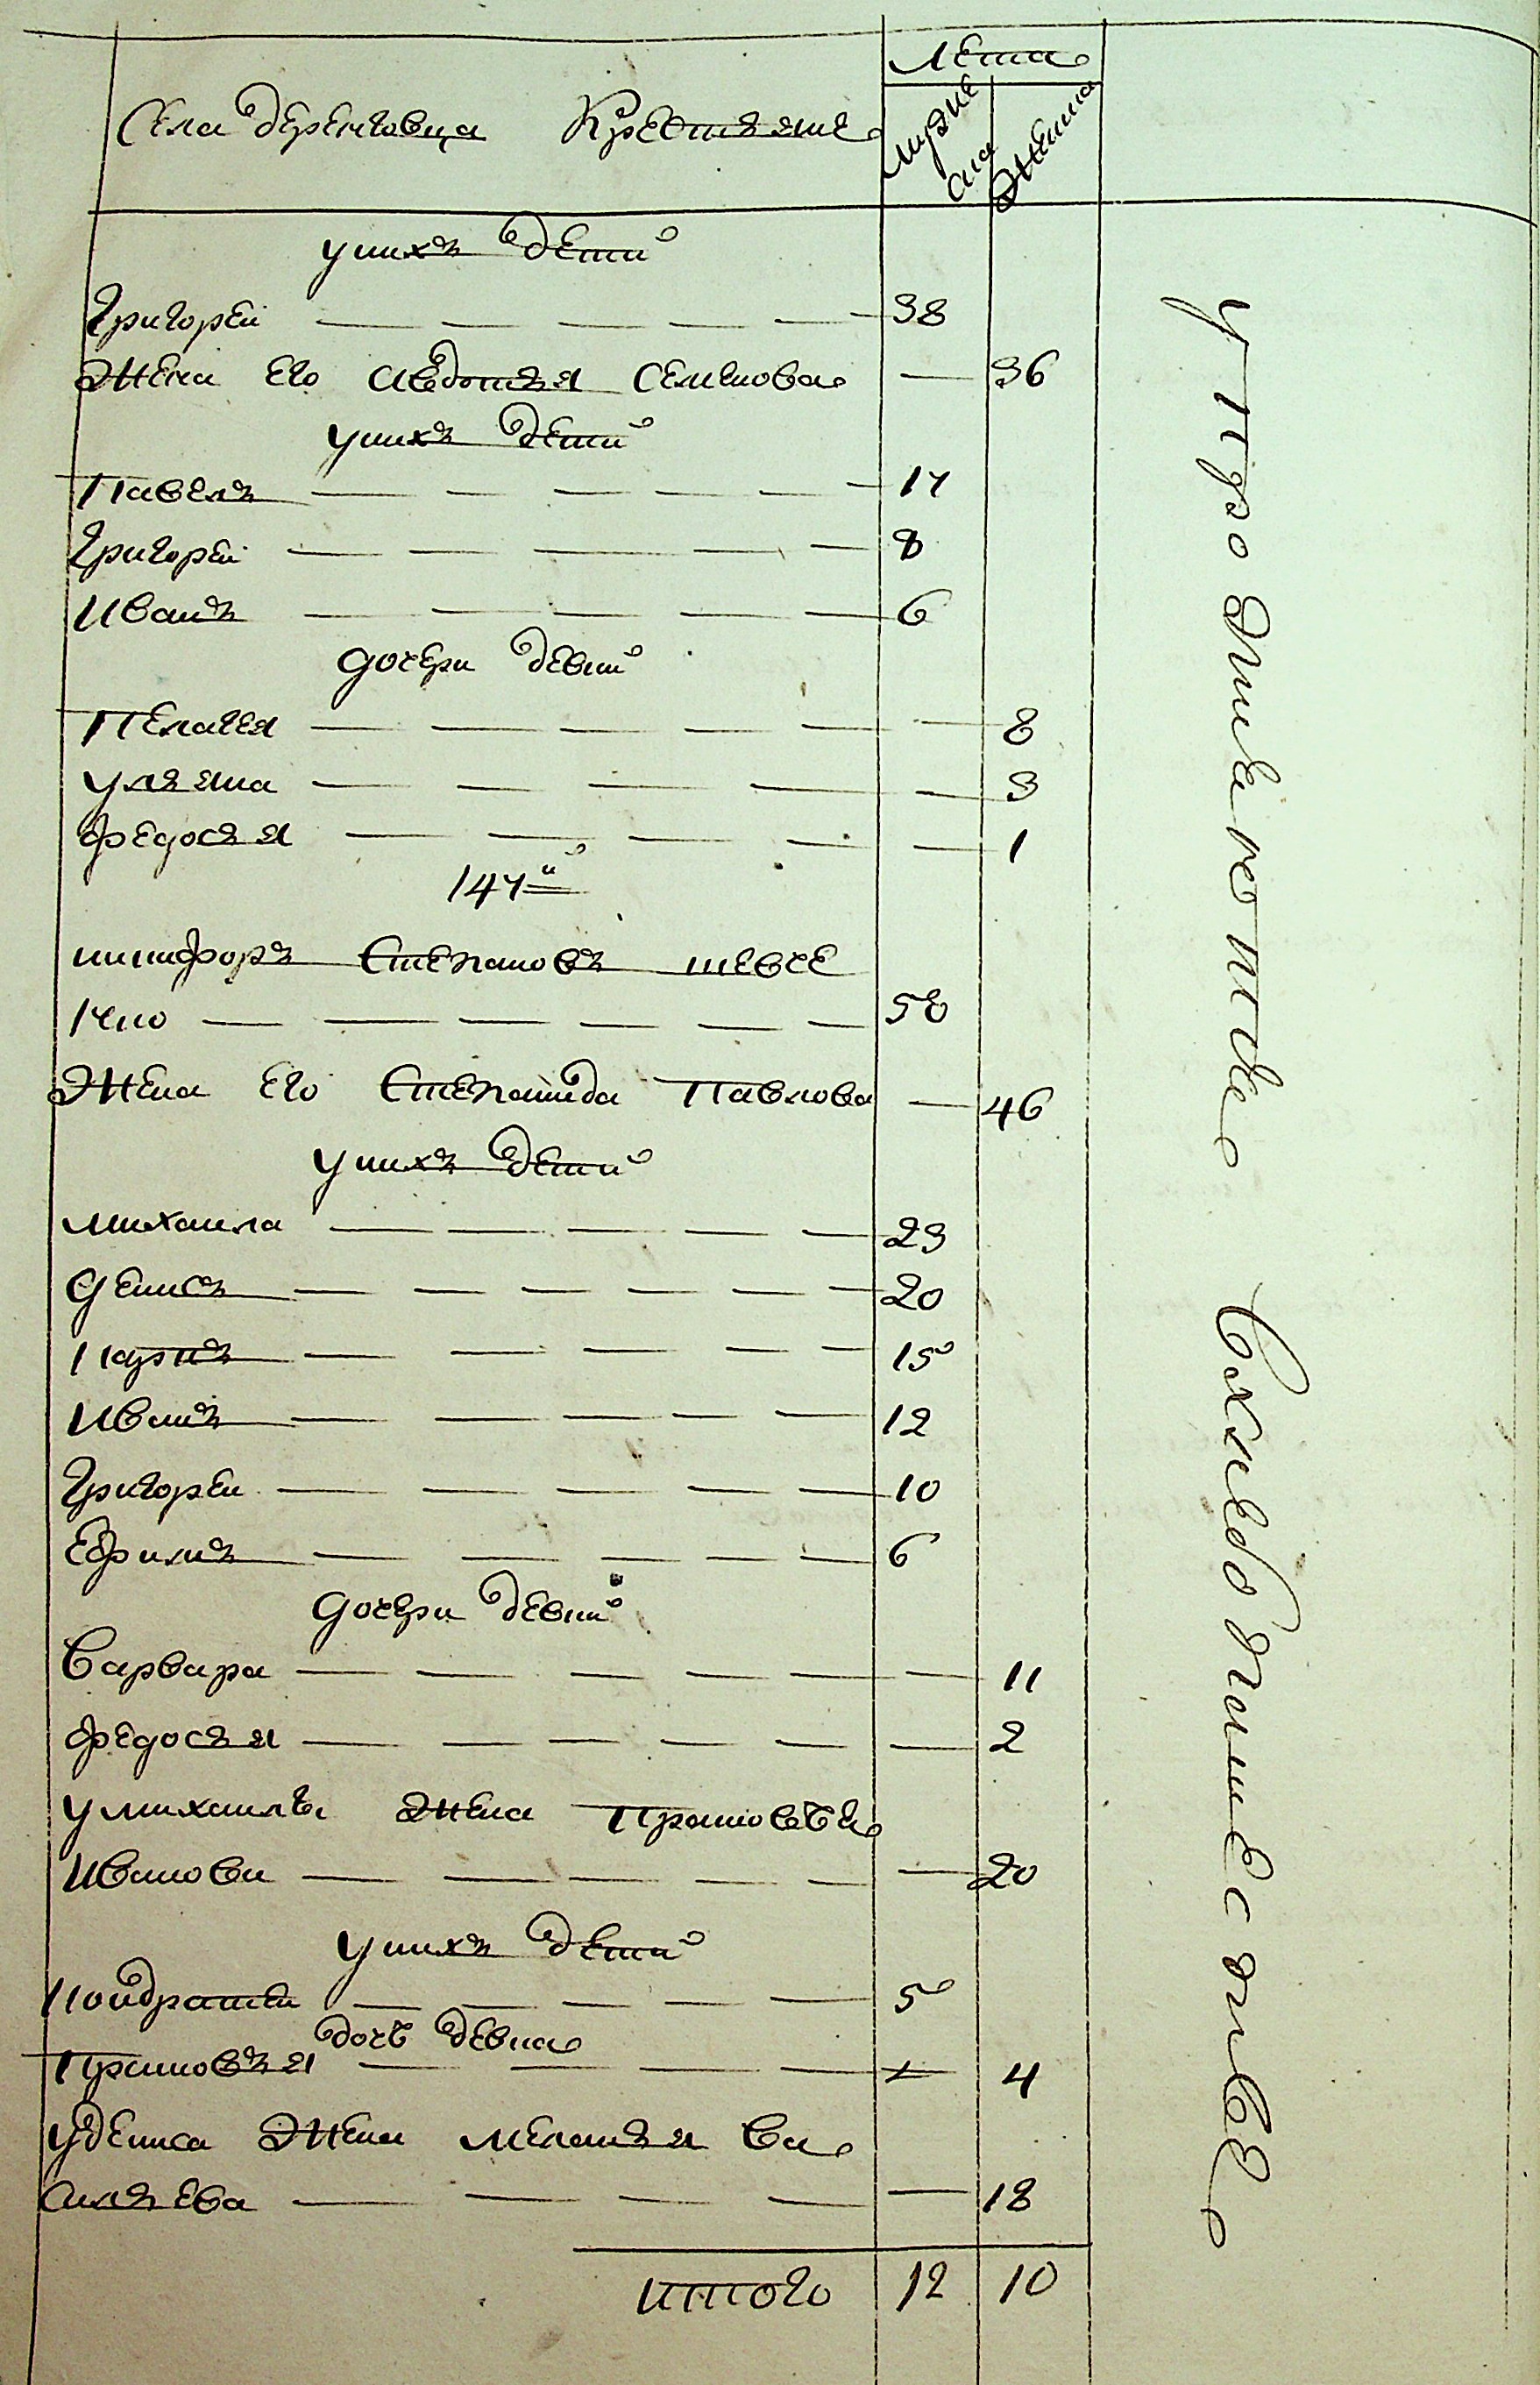 Лета
Села деренговца Крестьяне
мужес
ка
женска
у них детей
Григорей 38
Жена его Авдотья Семенова 36
у них детей
Павелъ 14
Григорей 8
Иванъ 6
дочери девки
Пелагея 8
Ульяна 3
Федосья 1
144й
никифоръ Степановъ шевче
нко 50
Жена его Степанида Павлова 46
у них детей
михаила 23
Денисъ 20
Карпъ 15
Иванъ 12
Григорей 10
Ефимъ 6
дочери девки
Варвара 11
Федосья 2
у михаилы Жена Прасковья
Иванова 20
у них детей
Кондратей 5
дочь девка
Прасковья 4
у дениса Жена меланья Ва
сильева 18
Итого 12 10
упро жнение
в хлебопашестве